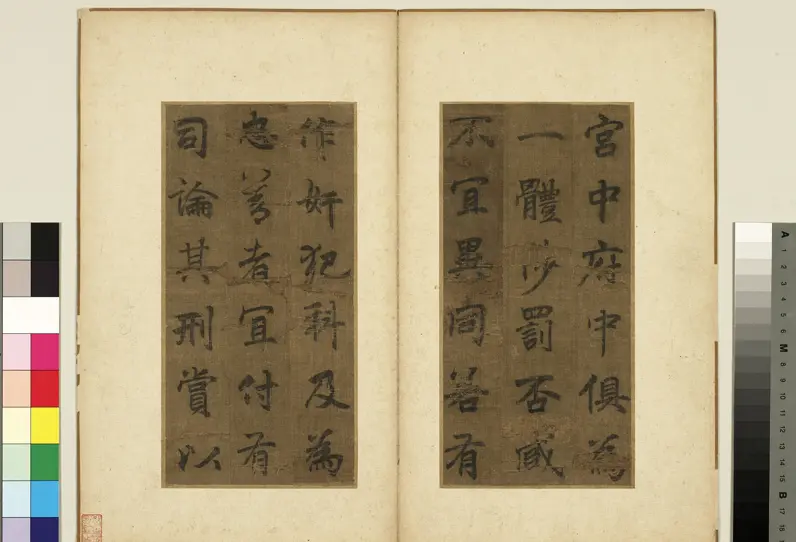 宮中府中俱為
一體陟罰否臧
不宜異同若有
作奸犯科及為
忠善者宜付有
司論其刑賞以
A 1 2 3 4 5 6 M 8 9 10 11 12 13 14 15 B 17 18